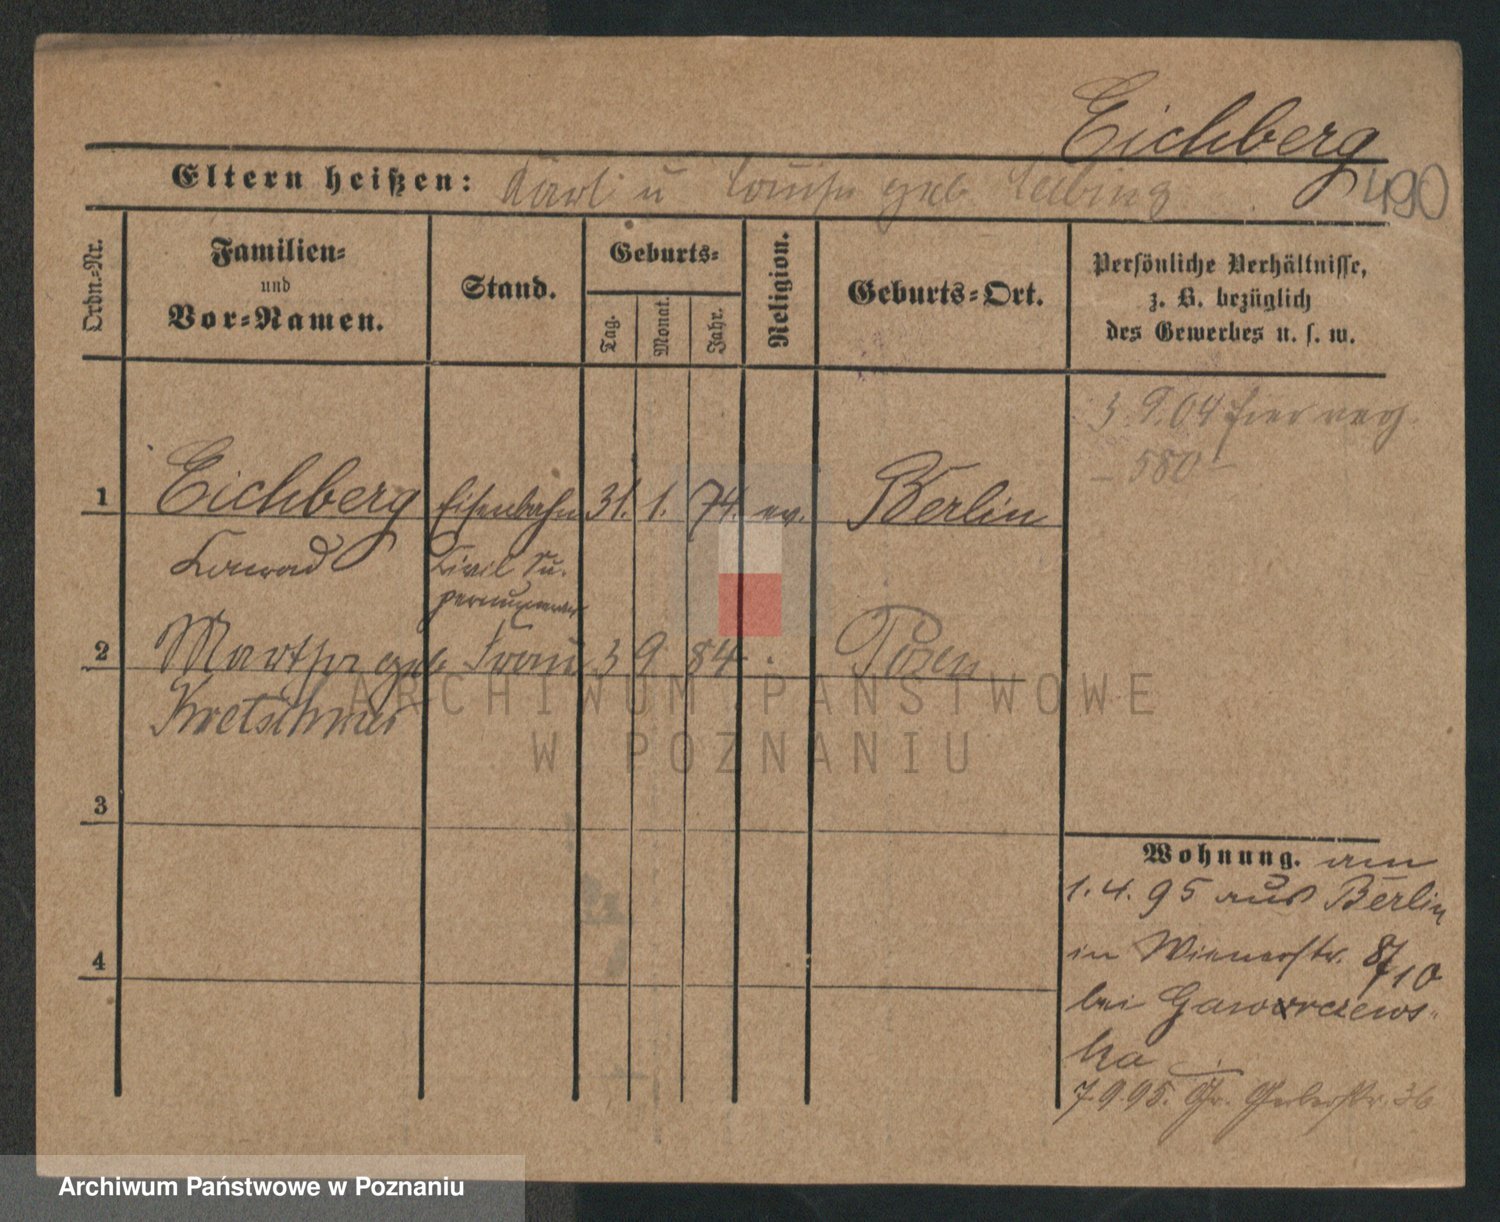 Eichberg
Eltern heißen: Karl u Louise geb.
490
Ordn.-Nr.
Familien-
und
Vor-Namen.
Stand.
Geburts-
Tag.
Monat.
Jahr.
Religion.
Geburts-Ort.
Persönliche Verhältnisse,
z. B. bezüglich
des Gewerbes u. s. w.
3.9.04 hier
- 580 -
1 Eichberg Eisenbahn 31. 1. 74. ev. Berlin
Conrad Civil Su-
pernumerar
2 Martha geb Frau 3 9 84 Posen
Kretschmer
3
4
Wohnung. am
1.4.95 aus Berlin
in Wienerstr. 8/10
bei
ka
7.9.95. Gr. Gerberstr. 36
ARCHIWUM PAŃSTWOWE
W POZNANIU
Archiwum Państwowe w Poznaniu